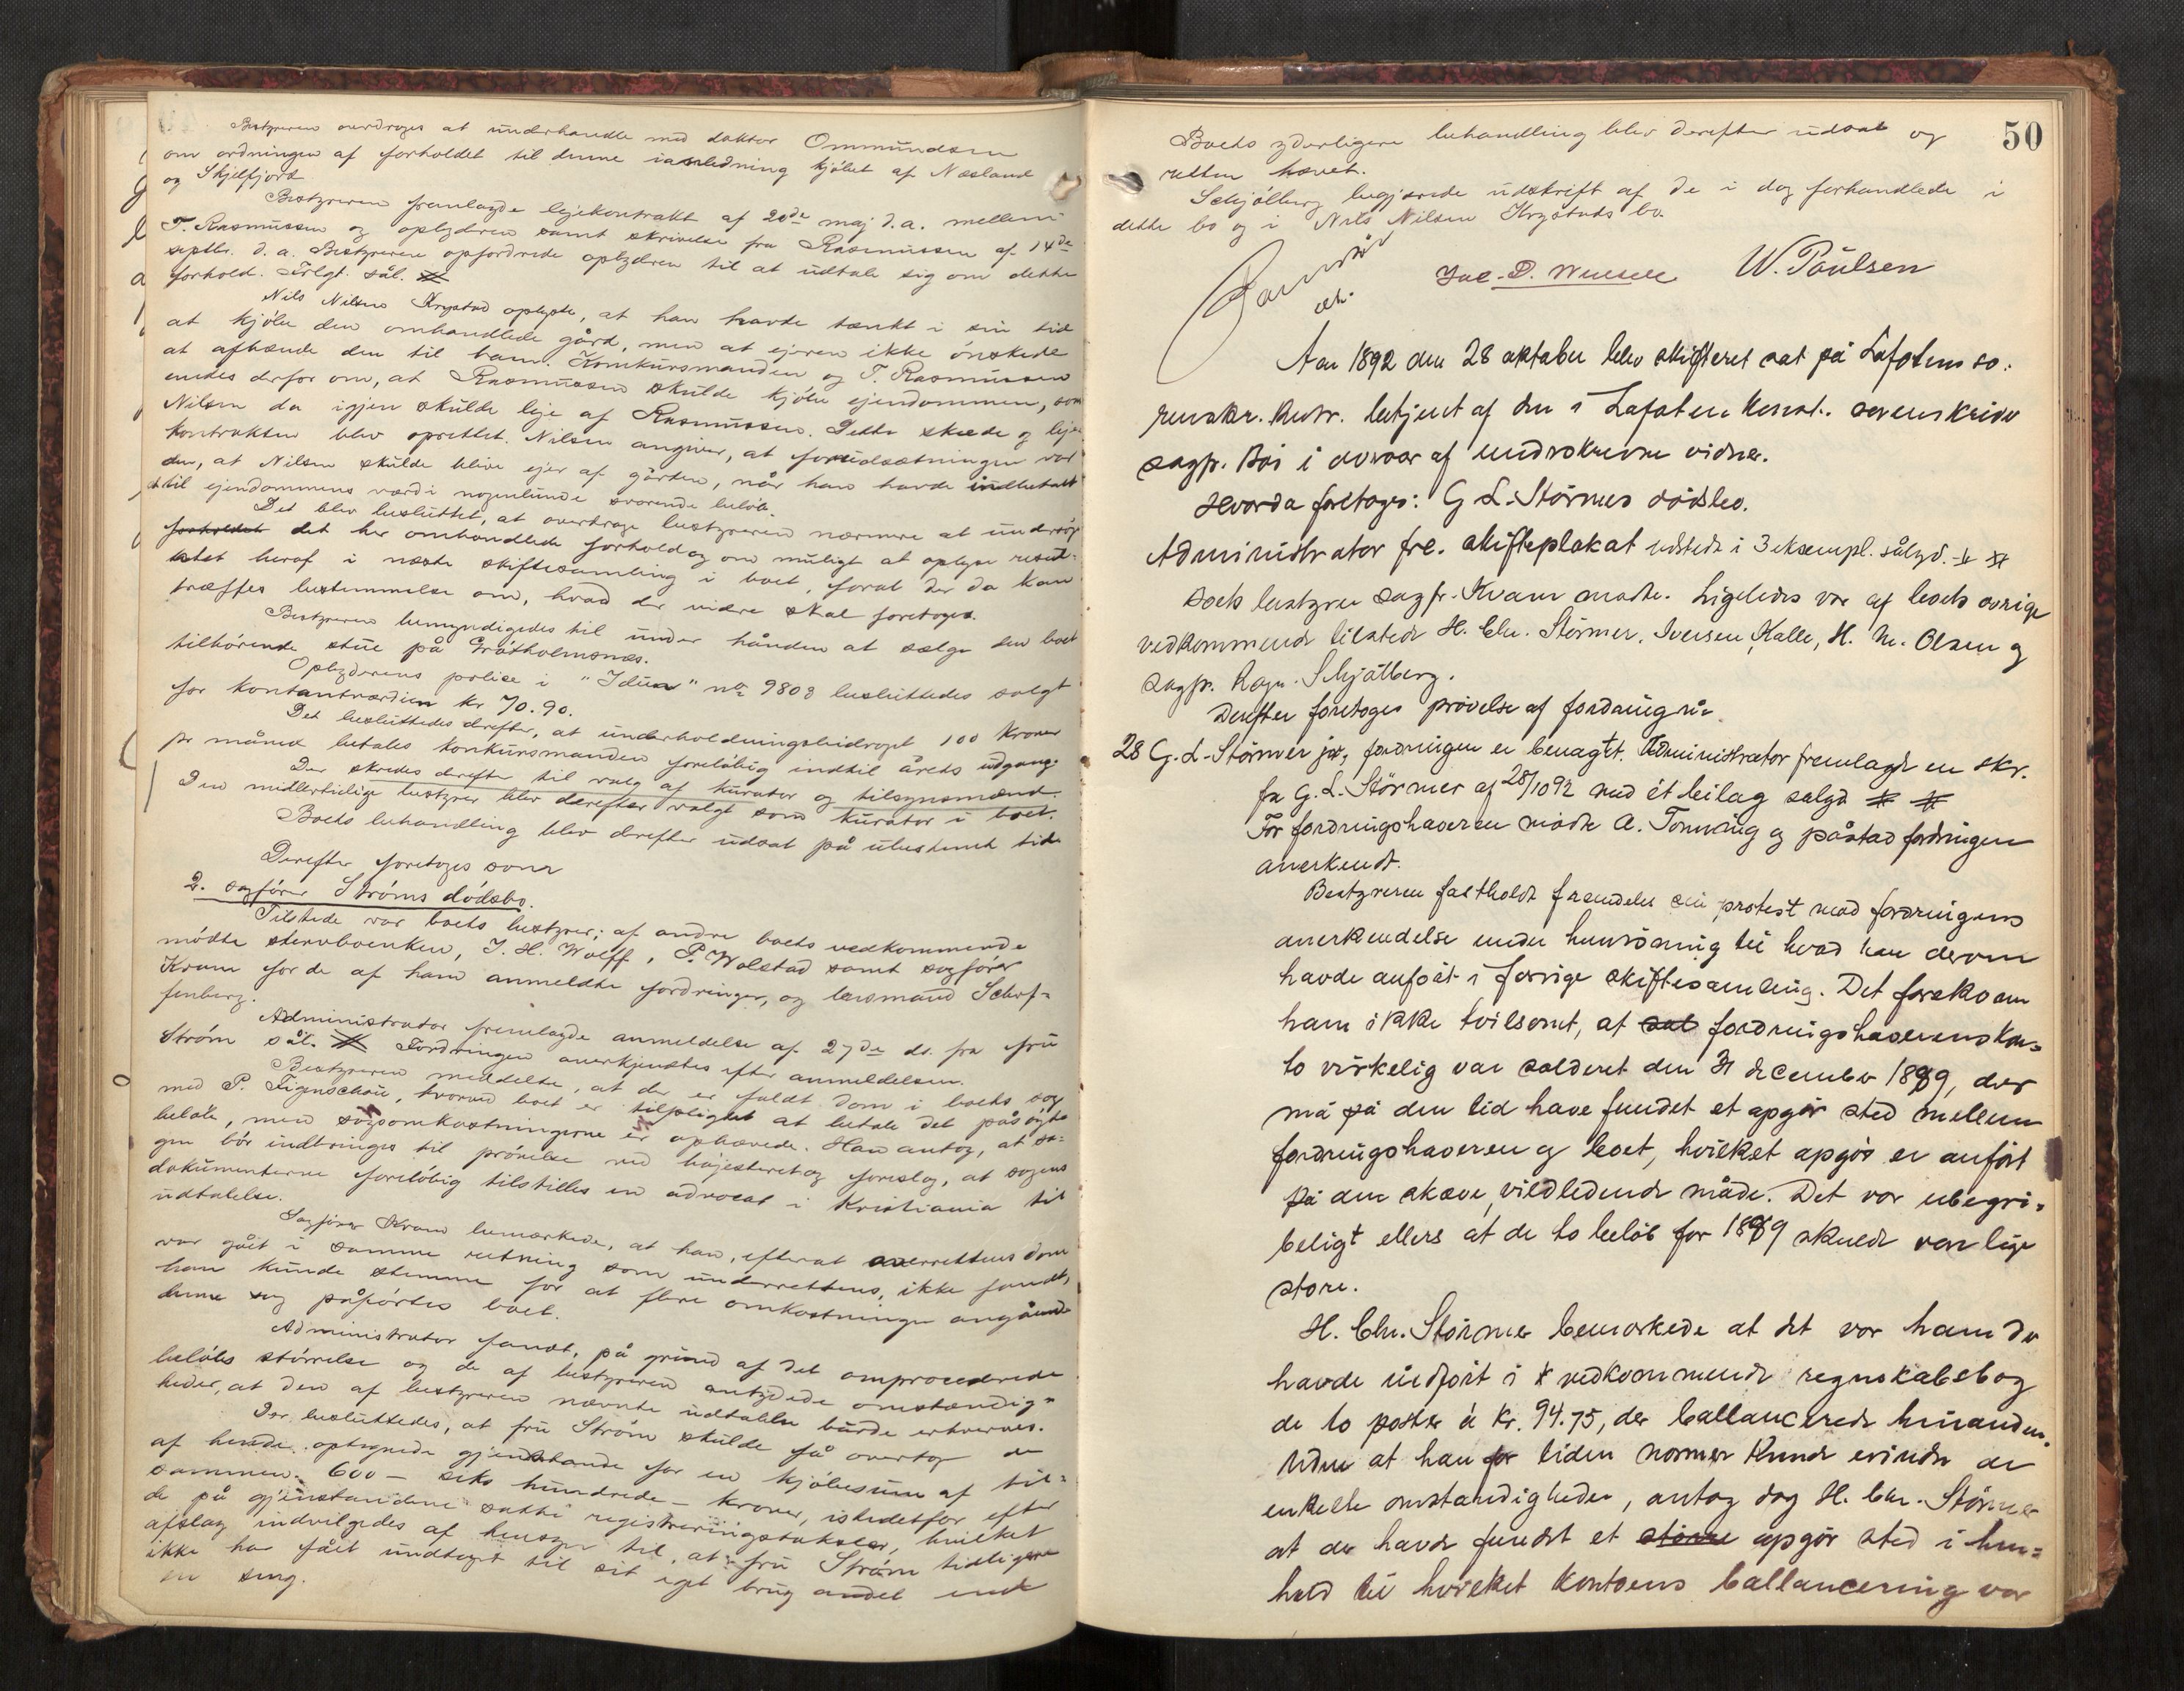 Bestyreren overdroges at underhandle med doktor Ommundsen
om ordningen af forholdet til denne i anledning kjöbet af Næsland
og Skjelfjord
Bestyreren fremlagde lejekontrakt af 20de maj d.a. mellem
T. Rasmussen og opbyderen samt skrivelse fra Rasmussen af 14de
septbr. d.a. Bestyreren opfordrede opbyderen til at udtale sig om dette
forhold. Frlgt. sål.
Nils Nilsens Krystad oplyste, at han havde tænkt i sin tid
at kjöbe den omhandlede gård, men at ejeren ikke önskede
at afhænde den til ham. Konkursmanden og T. Rasmussen
enedes derfor om, at Rasmussen skulde kjöbe ejendommen, som
Nilsen da igjen skulde leje af Rasmussen. Dette skede og leje-
kontrakten blev oprettet. Nilsen angiver, at forudsætningen var
den, at Nilsen skulde blive ejer af gården, når han havde indbetalt
et til ejendommens værdi nogenlunde svarende belöb.
Det blev besluttet, at overdrage bestyreren nærmere at undersöge
forholdet det her omhandlede forhold og om muligt at oplyse resul-
tatet heraf i næste skiftesamling i boet, forat der da kan
træffes bestemmelse om, hvad der videre skal foretages.
Bestyreren bemyndigedes til under hånden at sælge den boet
tilhörende stue på Gråtholmsnæs.
Opbyderens police i "Idun" no 9808 besluttedes solgt
for kontantværdien kr 70.90.
Det besluttedes derefter, at underholdningsbidraget 100 kroner
pr måned betales konkursmanden foreløbig indtil årets udgang.
Der skredes derefter til valg af kurator og tilsynsmænd.
Den midlertidige bestyrer blev derefter valgt som kurator i boet.
Boets behandling blev derefter udsat på ubestemt tid.
Derefter foretoges som
2. sagförer Ströms dödsbo.
Tilstede var boets bestyrer; af andre boets vedkommende
mödte stervboenken, J. H. Wolff, P. Wolstad samt sagförer
Kvam for de af ham anmeldte fordringer, og lensmand Schef-
fenberg.
Administrator fremlagde anmeldelse af 27de ds. fra fru
Ström sål. Fordringen anerkjendtes efter anmeldelsen.
Bestyreren meddelte, at der er faldt dom i boets sag
med P. Figenschou, hvorved boet er tilpligtet at betale det påsögte
belöb, men sagsomkostningerne er ophævede. Han antog, at sa-
gen bör indbringes til prövelse ved höjesteret og foreslog, at sagens
dokumenterne foreløbig tilstilles en advocat i Kristiania til
udtalelse.
Sagförer Kvam bemærkede, at han, efterat overrettens dom
var gået i samme retning som underrettens, ikke fandt,
han kunde stemme for at flere omkostninger angående
denne sag påförtes boet.
Administrator fandt, på grund af det omprocederede
belöbs störrelse og de af bestyreren antydede omstændig-
heder, at den af bestyreren nævnte udtalelse burde erhverves.
Der besluttedes, at fru Ström skulde få overtage de
af hende optegnede gjenstande for en kjöbesum af til-
sammen 600 – seks hundrede – kroner, istedetfor efter
de på gjenstandene satte registreringstakster, hvilket
afslag indvilgedes af hensyn til, at fru Ström tidligere
ikke har fået undtaget til sit eget brug andet end
en seng.
50
Boets yderligere behandling blev derefter udsat og
retten hævet.
Schjölberg begjærede udskrift af de i dag forhandlede i
dette bo og i Nils Nilsen Krystads bo.
Jac. D. W. Paulsen
Aar 1892 den 28 oktober blev skifteret sat på Lofotens so-
renskr. kontr. betjent af den i Lofoten konst. sorenskriver
sagfr. Boi i overvær af undroskrevne vidner.
Hvorda foretoges: G L. Störmers dödsbo.
Administrator fre. skifteplakat udstedt i 3 eksempl. sålyd.
Boets bestyrer sagfr. Kvam mödte. Ligeledes var af boets övrige
vedkommende tilstede H. Chr. Störmer, Iversen Kalle, H. M. Olsen og
sagfr. Ragn. Schjölberg.
Derefter foretoges prövelse af fordringer.
28 G. L. Störmer jr., fordringen er benægtet. Administrator fremlagde en skr.
fra G. L. Störmer af 28/10 92 med ét bilag salyd
For fordringshaveren mödte A. Tonning og påstod fordringen
anerkendt.
Bestyreren fastholdt fremdeles sin protest mod fordringens
anerkendelse under henvisning til hvad han derom
havde anfört i forrige skiftesamling. Det forekom
ham ikke tvilsomt, at fordringshaverens kon-
to virkelig var salderet den 31 december 1889, der
må på den tid have fundet et opgör sted mellem
fordringshaveren og boet, hvilket opgör er anfört
på den skæve, vildledende måde. Det var ubegri-
beligt ellers at de to belöb for 1889 skulde være lige
store.
H. Chr. Störmer bemærkede at det var ham der
havde indfört i vedkommende regnskabsbog
de to poster á kr. 94.75, der ballancerede hinanden.
Uden at han for tiden nærmer kunde erindre de
enkelte omstændigheder, antog dog H. Chr. Störmer
at der havde fundet et större opgör sted i hen-
hold til hvilket kontoens ballancering var